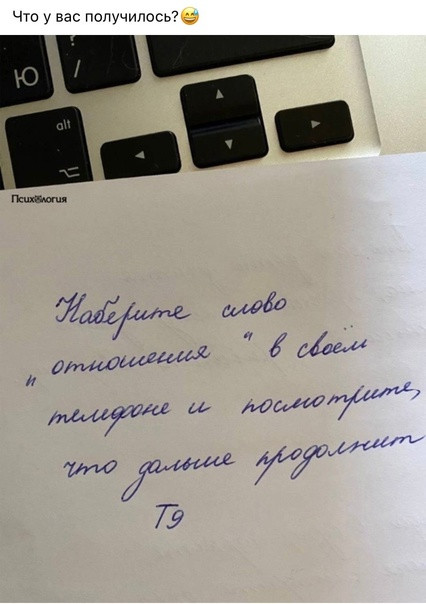 Что у вас получилось?😅
Ю
/
alt
Психология
Наберите слово
"отношения" в своём
телефоне и посмотрите,
что дальше продолжит
Т9